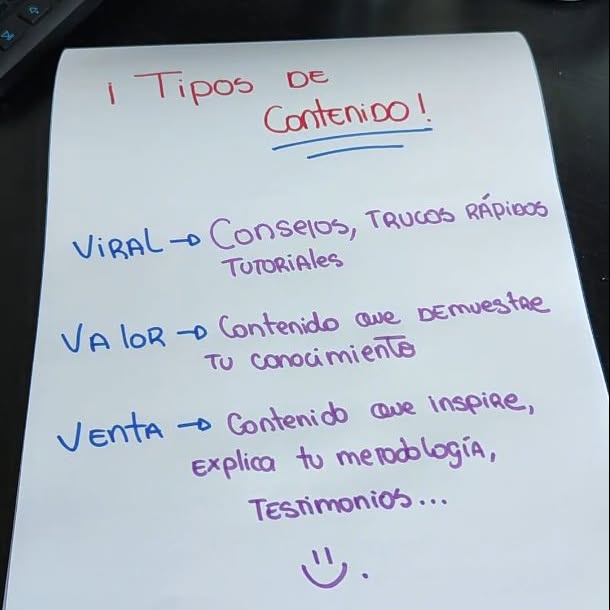 ¡ Tipos DE
Contenido!
ViRAL → Consejos, TRUCOS RÁPIDOS
TUTORiAles
VAloR → Contenido que DEMuestre
TU conocimiento
VEntA → Contenido que inspire,
Explica tu metodologíA,
TEStimonios...